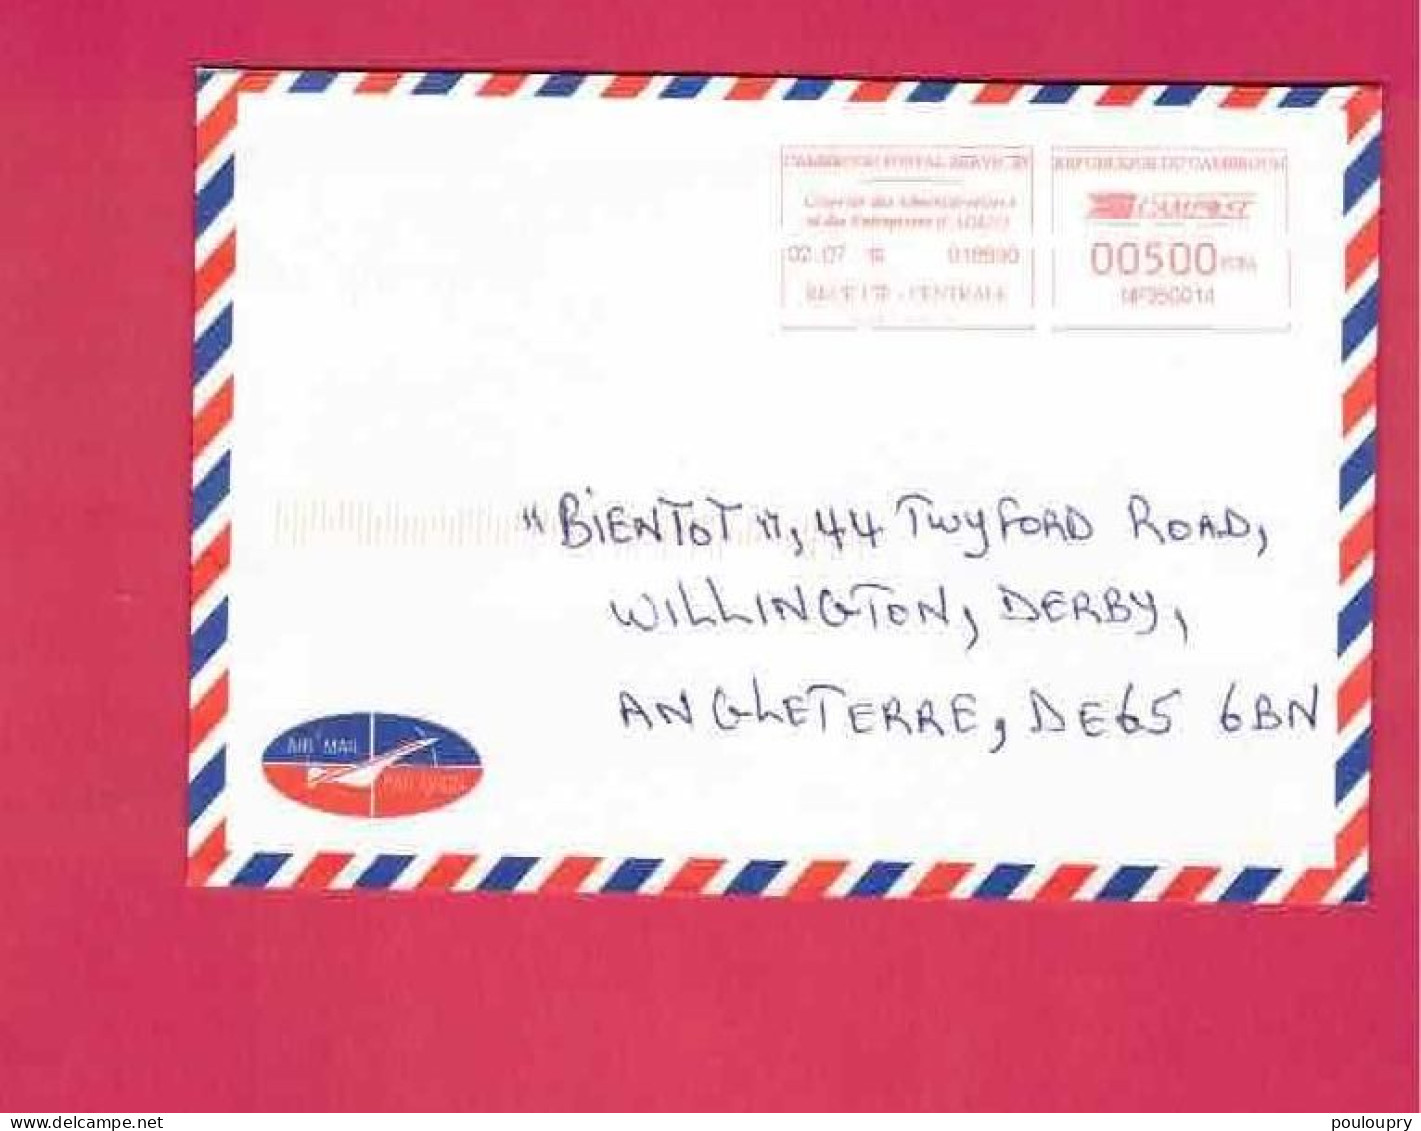 CAMEROON POSTAL SERVICES
REPUBLIQUE DU CAMEROUN
Courrier des Administrations
et des Entreprises
CAMPOST
02 07
018990
00500
RECETTE - CENTRALE
MP350014
"BIENTOT", 44 TWYFORD ROAD,
WILLINGTON, DERBY,
ANGLETERRE, DE65 6BN
AIR MAIL
PAR AVION
www.delcampe.net
pouloupry